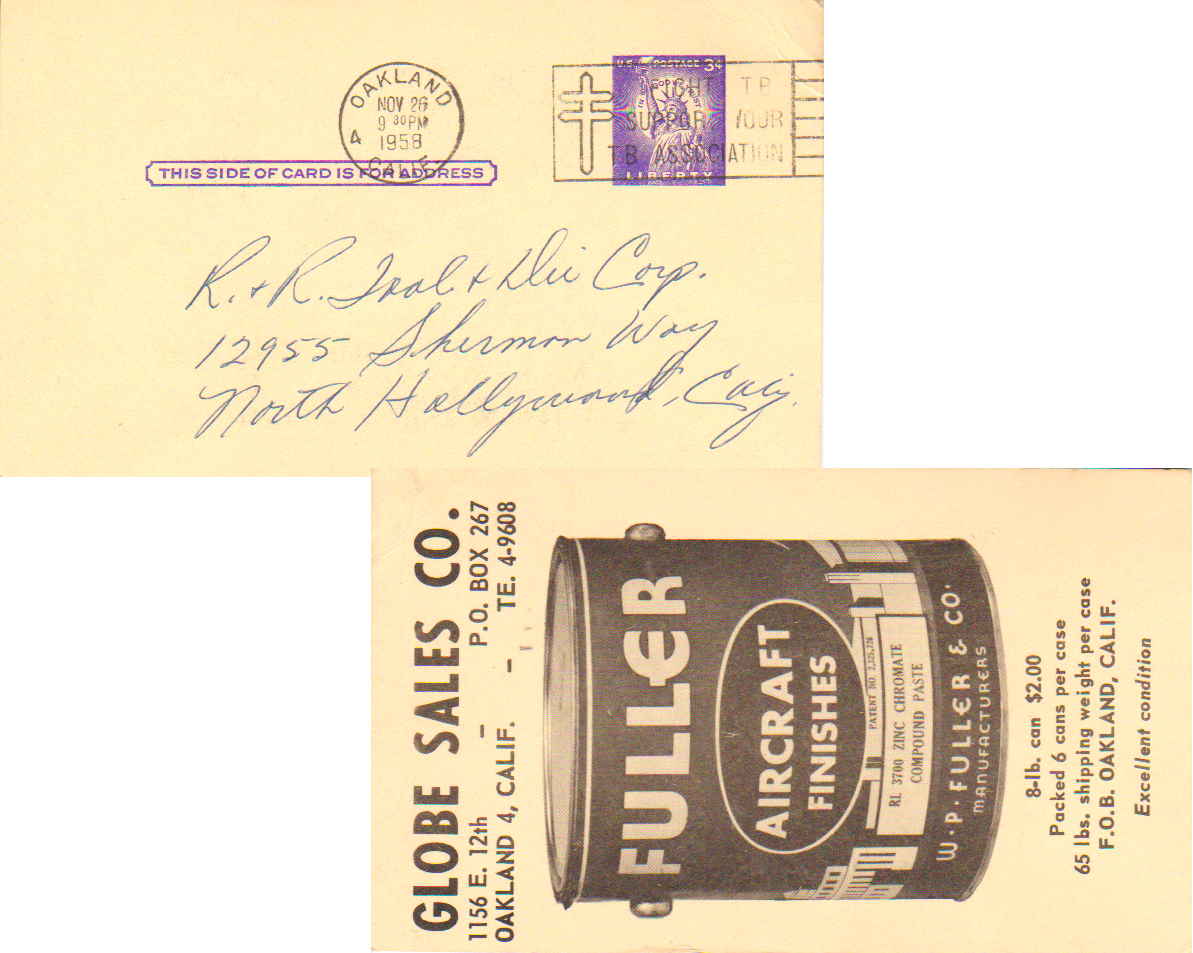 OAKLAND
NOV 26
9 30 PM
1958
4 CALIF.
U.S. POSTAGE 3¢
IN GOD WE TRUST
LIBERTY
FIGHT TB
SUPPORT YOUR
TB ASSOCIATION
THIS SIDE OF CARD IS FOR ADDRESS
R. + R. Tool + Die Corp.
12955 Sherman Way
North Hollywood, Calif.
GLOBE SALES CO.
1156 E. 12th – P.O. BOX 267
OAKLAND 4, CALIF. - - TE. 4-9608
FULLER
AIRCRAFT
FINISHES
PATENT NO. 2,325,226
RL 3700 ZINC CHROMATE
COMPOUND PASTE
W·P·FULLER & CO·
MANUFACTURERS
8-lb. can $2.00
Packed 6 cans per case
65 lbs. shipping weight per case
F.O.B. OAKLAND, CALIF.
Excellent condition